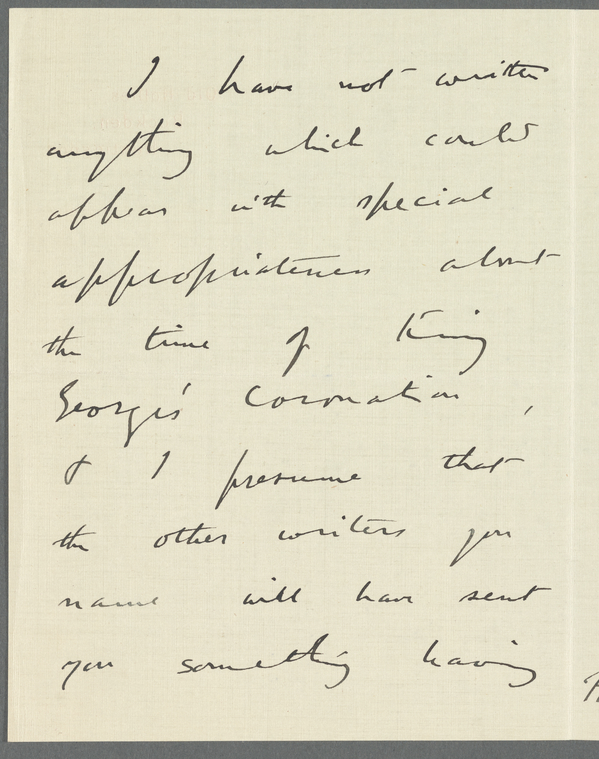 I have not written
anything which could
appear with special
appropriateness about
the time of King
George's Coronation,
& I presume that
the other writers you
name will have sent
you something having